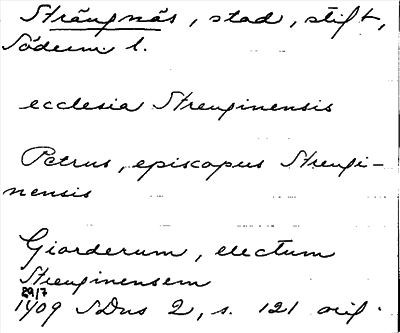 Strängnäs, stad, stift,
Söderm l.
ecclesia Strenginensis
Petrus, episcopus Strengi-
nensis
Giorderum, electum
Strenginensem
29/7
1409 SDns 2, s. 121 orig.